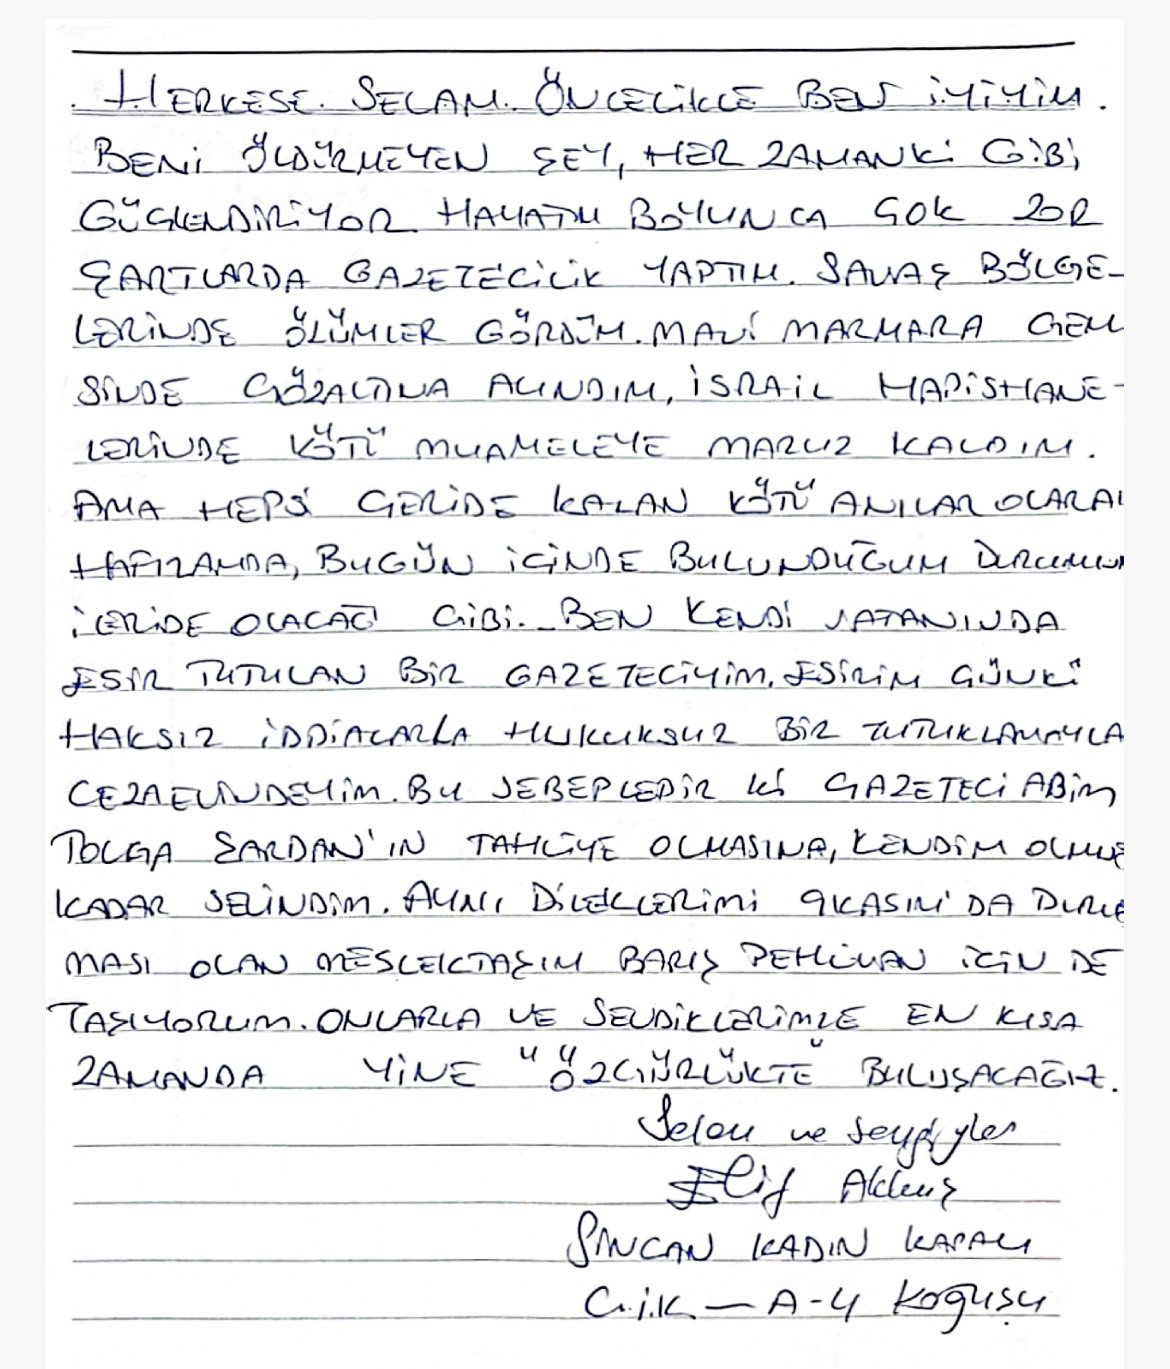 HERKESE SELAM. ÖNCELİKLE BEN İYİYİM.
BENİ ÖLDÜRMEYEN ŞEY, HER ZAMANKİ GİBİ
GÜÇLENDİRİYOR. HAYATIM BOYUNCA ÇOK ZOR
ŞARTLARDA GAZETECİLİK YAPTIM. SAVAŞ BÖLGE-
LERİNDE ÖLÜMLER GÖRDÜM. MAVİ MARMARA GEM
SİNDE GÖZALTINA ALINDIM, İSRAİL HAPİSHANE-
LERİNDE KÖTÜ MUAMELEYE MARUZ KALDIM.
AMA HEPSİ GERİDE KALAN KÖTÜ ANILAR OLARAK
HAFIZAMDA, BUGÜN İÇİNDE BULUNDUĞUM DURUMUN
İLERİDE OLACAĞI GİBİ. BEN KENDİ VATANINDA
ESİR TUTULAN BİR GAZETECİYİM. ESİRİM ÇÜNKİ
HAKSIZ İDDİALARLA HUKUKSUZ BİR TUTUKLAMAYLA
CEZAEVİNDEYİM. BU SEBEPLEDİR Kİ GAZETECİ ABİM
TOLGA ŞARDAN'IN TAHLİYE OLMASINA, KENDİM OLMUŞ
KADAR SEVİNDİM. AYNI DİLEKLERİMİ 9 KASIM'DA DURUŞ
MASI OLAN MESLEKTAŞIM BARIŞ PEHLİVAN İÇİN DE
TAŞIYORUM. ONLARLA VE SEVDİKLERİMLE EN KISA
ZAMANDA YİNE "ÖZGÜRLÜKTE" BULUŞACAĞIZ.
Selam ve sevgiyle
Elif Akkuş
SİNCAN KADIN KAPALI
C.İ.K – A-4 Koğuşu